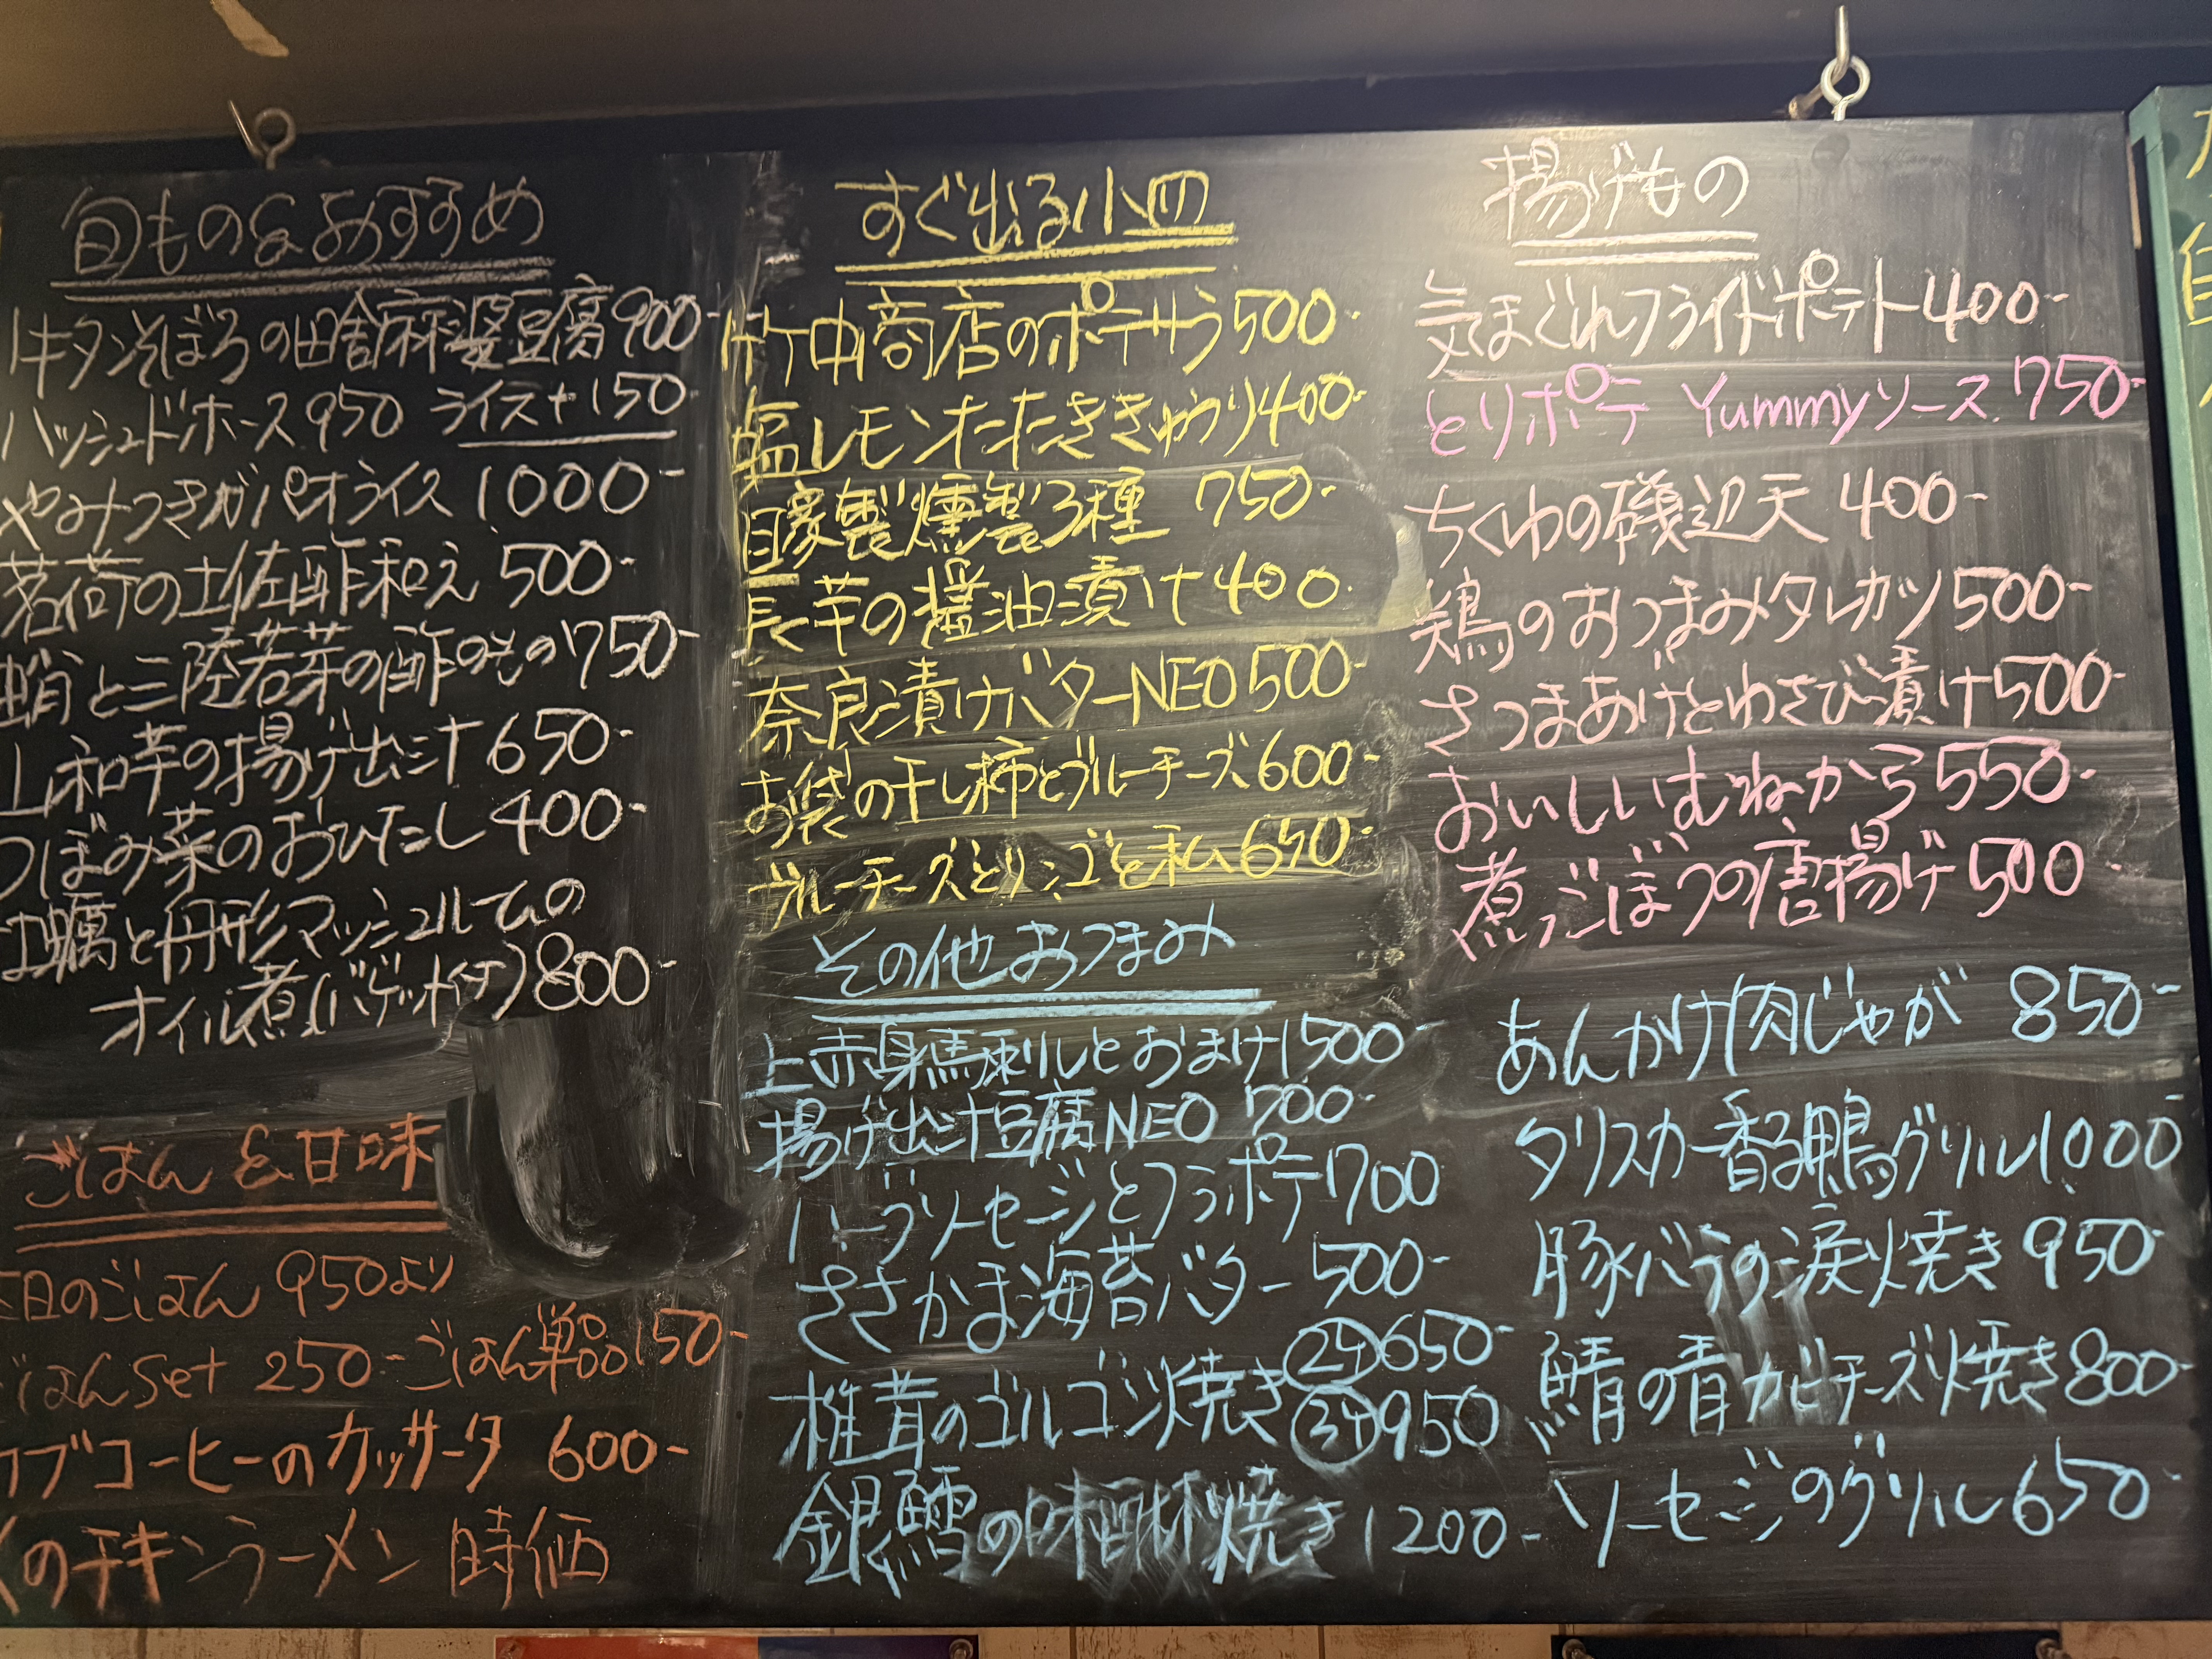 旬もの&おすすめ
トキタンそぼろの田舎麻婆豆腐 900-
ハッシュドホース 950 ライス+150-
やみつきガパオライス 1,000-
茗荷の土佐酢和え 500-
蛸と三陸若芽の酢のもの 750-
山和芋の揚げ出汁 650-
つぼみ菜のおひたし 400-
牡蠣と舟形マッシュルームの
オイル煮(バゲット付) 800-
ごはん&甘味
本日のごはん 950より
ごはんSet 250- ごはん単品 150-
ブコーヒーのカッサータ 600-
のチキンラーメン 時価
すぐ出る小皿
竹中商店のポテサラ 500-
塩レモンたたききゅうり 400-
自家製燻製3種 750-
長芋の醤油漬け 400
奈良漬けバターNEO 500-
お袋の干し柿とブルーチーズ 600-
ブルーチーズとリンゴと私 650-
その他おつまみ
上赤身馬刺しとおまけ 1500-
揚げ出汁豆腐NEO 700-
ハーブソーセージとフラポテ 700
ささかま海苔バター 500-
椎茸のゴルゴンゾ焼き 2ケ 650-
3ケ 950
銀鱈の味醂焼き 1200-
揚げもの
気まぐれフライドポテト 400-
とりポテ Yummyソース 750-
ちくわの磯辺天 400-
鶏のおつまみタレカツ 500-
さつまあげとわさび漬け 500-
おいしいむねから 550-
煮ごぼうの唐揚げ 500
あんかけ肉じゃが 850-
タリスカー香る鴨グリル 1,000-
豚バラの涙焼き 950-
鯖の青カビチーズ焼き 800-
ソーセージのグリル 650-